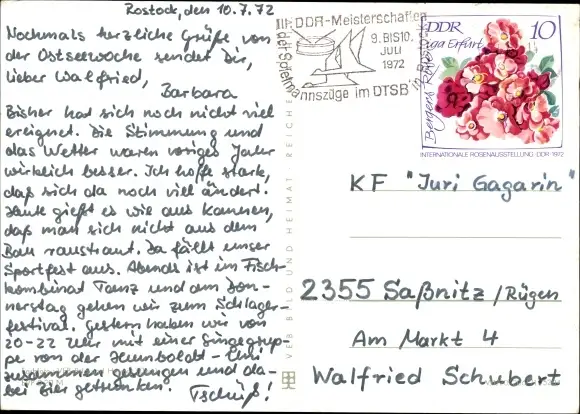 Rostock, den 10.7.72
Nochmals herzliche Grüße von
der Ostseewoche sendet Dir,
lieber Walfried,
Barbara
Bisher hat sich noch nicht viel
ereignet. Die Stimmung und
das Wetter waren voriges Jahr
wirklich besser. Ich hoffe stark,
daß sich da noch viel ändert.
Heute gießt es wie aus Kannen,
daß man sich nicht aus dem
Bau raustraut. Da fällt unser
Sportfest aus. Abends ist im Fisch-
kombinat Tanz und am Don-
nerstag gehen wir zum Schlager-
festival. Gestern haben wir von
20-22 Uhr mit einer Singegrup-
pe von der Humboldt-Uni
zusammen gesungen und da-
bei Bier getrunken.
Tschüß!
VEB BILD UND HEIMAT REICHE
III. DDR-Meisterschaften
der Spielmannszüge im DTSB in
9. BIS 10.
JULI
1972
DDR 10
iga Erfurt
Bergers Rose
INTERNATIONALE ROSENAUSSTELLUNG DDR 1972
KF "Juri Gagarin"
2355 Saßnitz/Rügen
Am Markt 4
Walfried Schubert